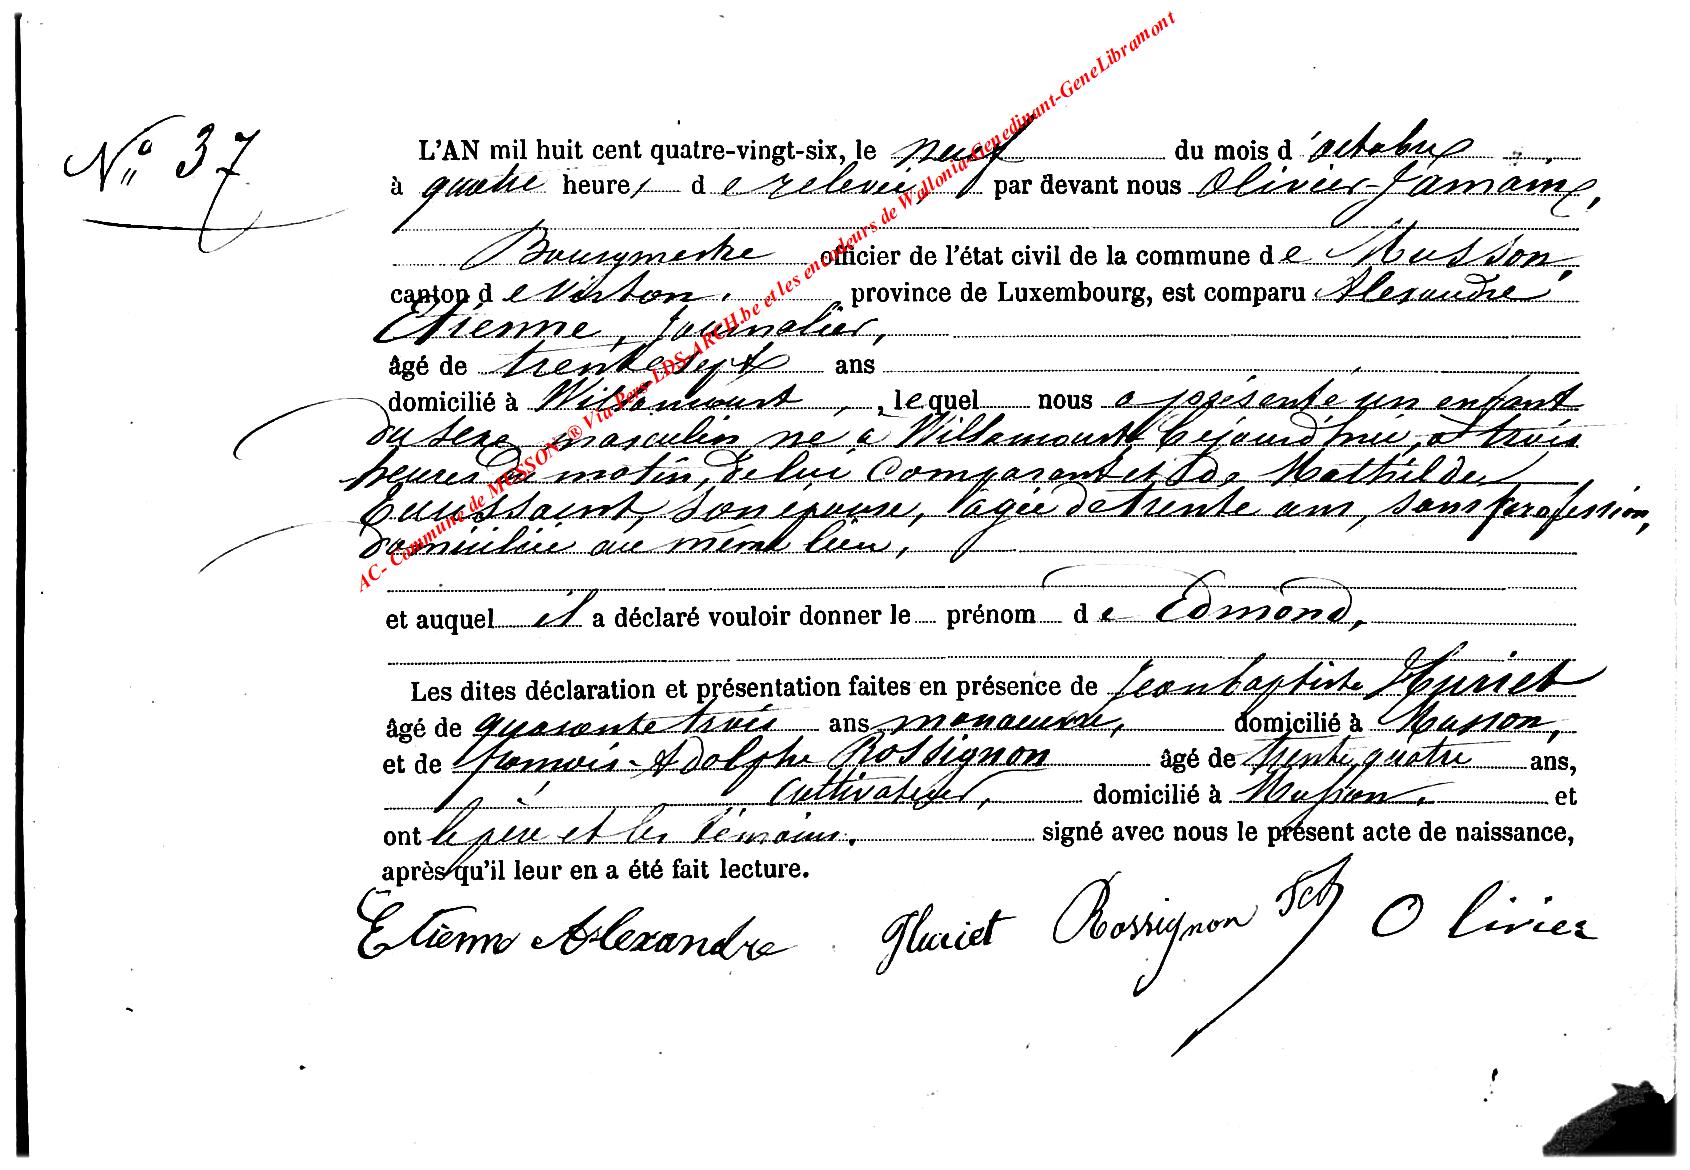 N° 37
L'AN mil huit cent quatre-vingt-six, le neuf du mois d'octobre
à quatre heures de relevée, par devant nous Olivier Jamain,
Bourgmestre officier de l'état civil de la commune de Musson,
canton de Virton, province de Luxembourg, est comparu Alexandre
Etienne, journalier,
âgé de trente sept ans
domicilié à Willancourt, lequel nous a présenté un enfant
du sexe masculin né à Willancourt cejourd'hui, à trois
heures du matin, de lui comparant et de Mathilde
son épouse, âgée de trente ans, sans profession,
domiciliée au même lieu,
et auquel il a déclaré vouloir donner le prénom de Edmond,
Les dites déclaration et présentation faites en présence de Jean baptiste Huriet
âgé de quarante trois ans manoeuvre, domicilié à Musson,
et de françois-Adolphe Rossignon âgé de trente quatre ans,
Cultivateur, domicilié à Musson. et
ont le père et les témoins. signé avec nous le présent acte de naissance,
après qu'il leur en a été fait lecture.
Etienne Alexandre Huriet Rossignon Olivier
AC- Commune de MUSSON ® Via Pers-LDS-ARCH.be et les encodeurs de Wallonia-Genedinant-GeneLibramont